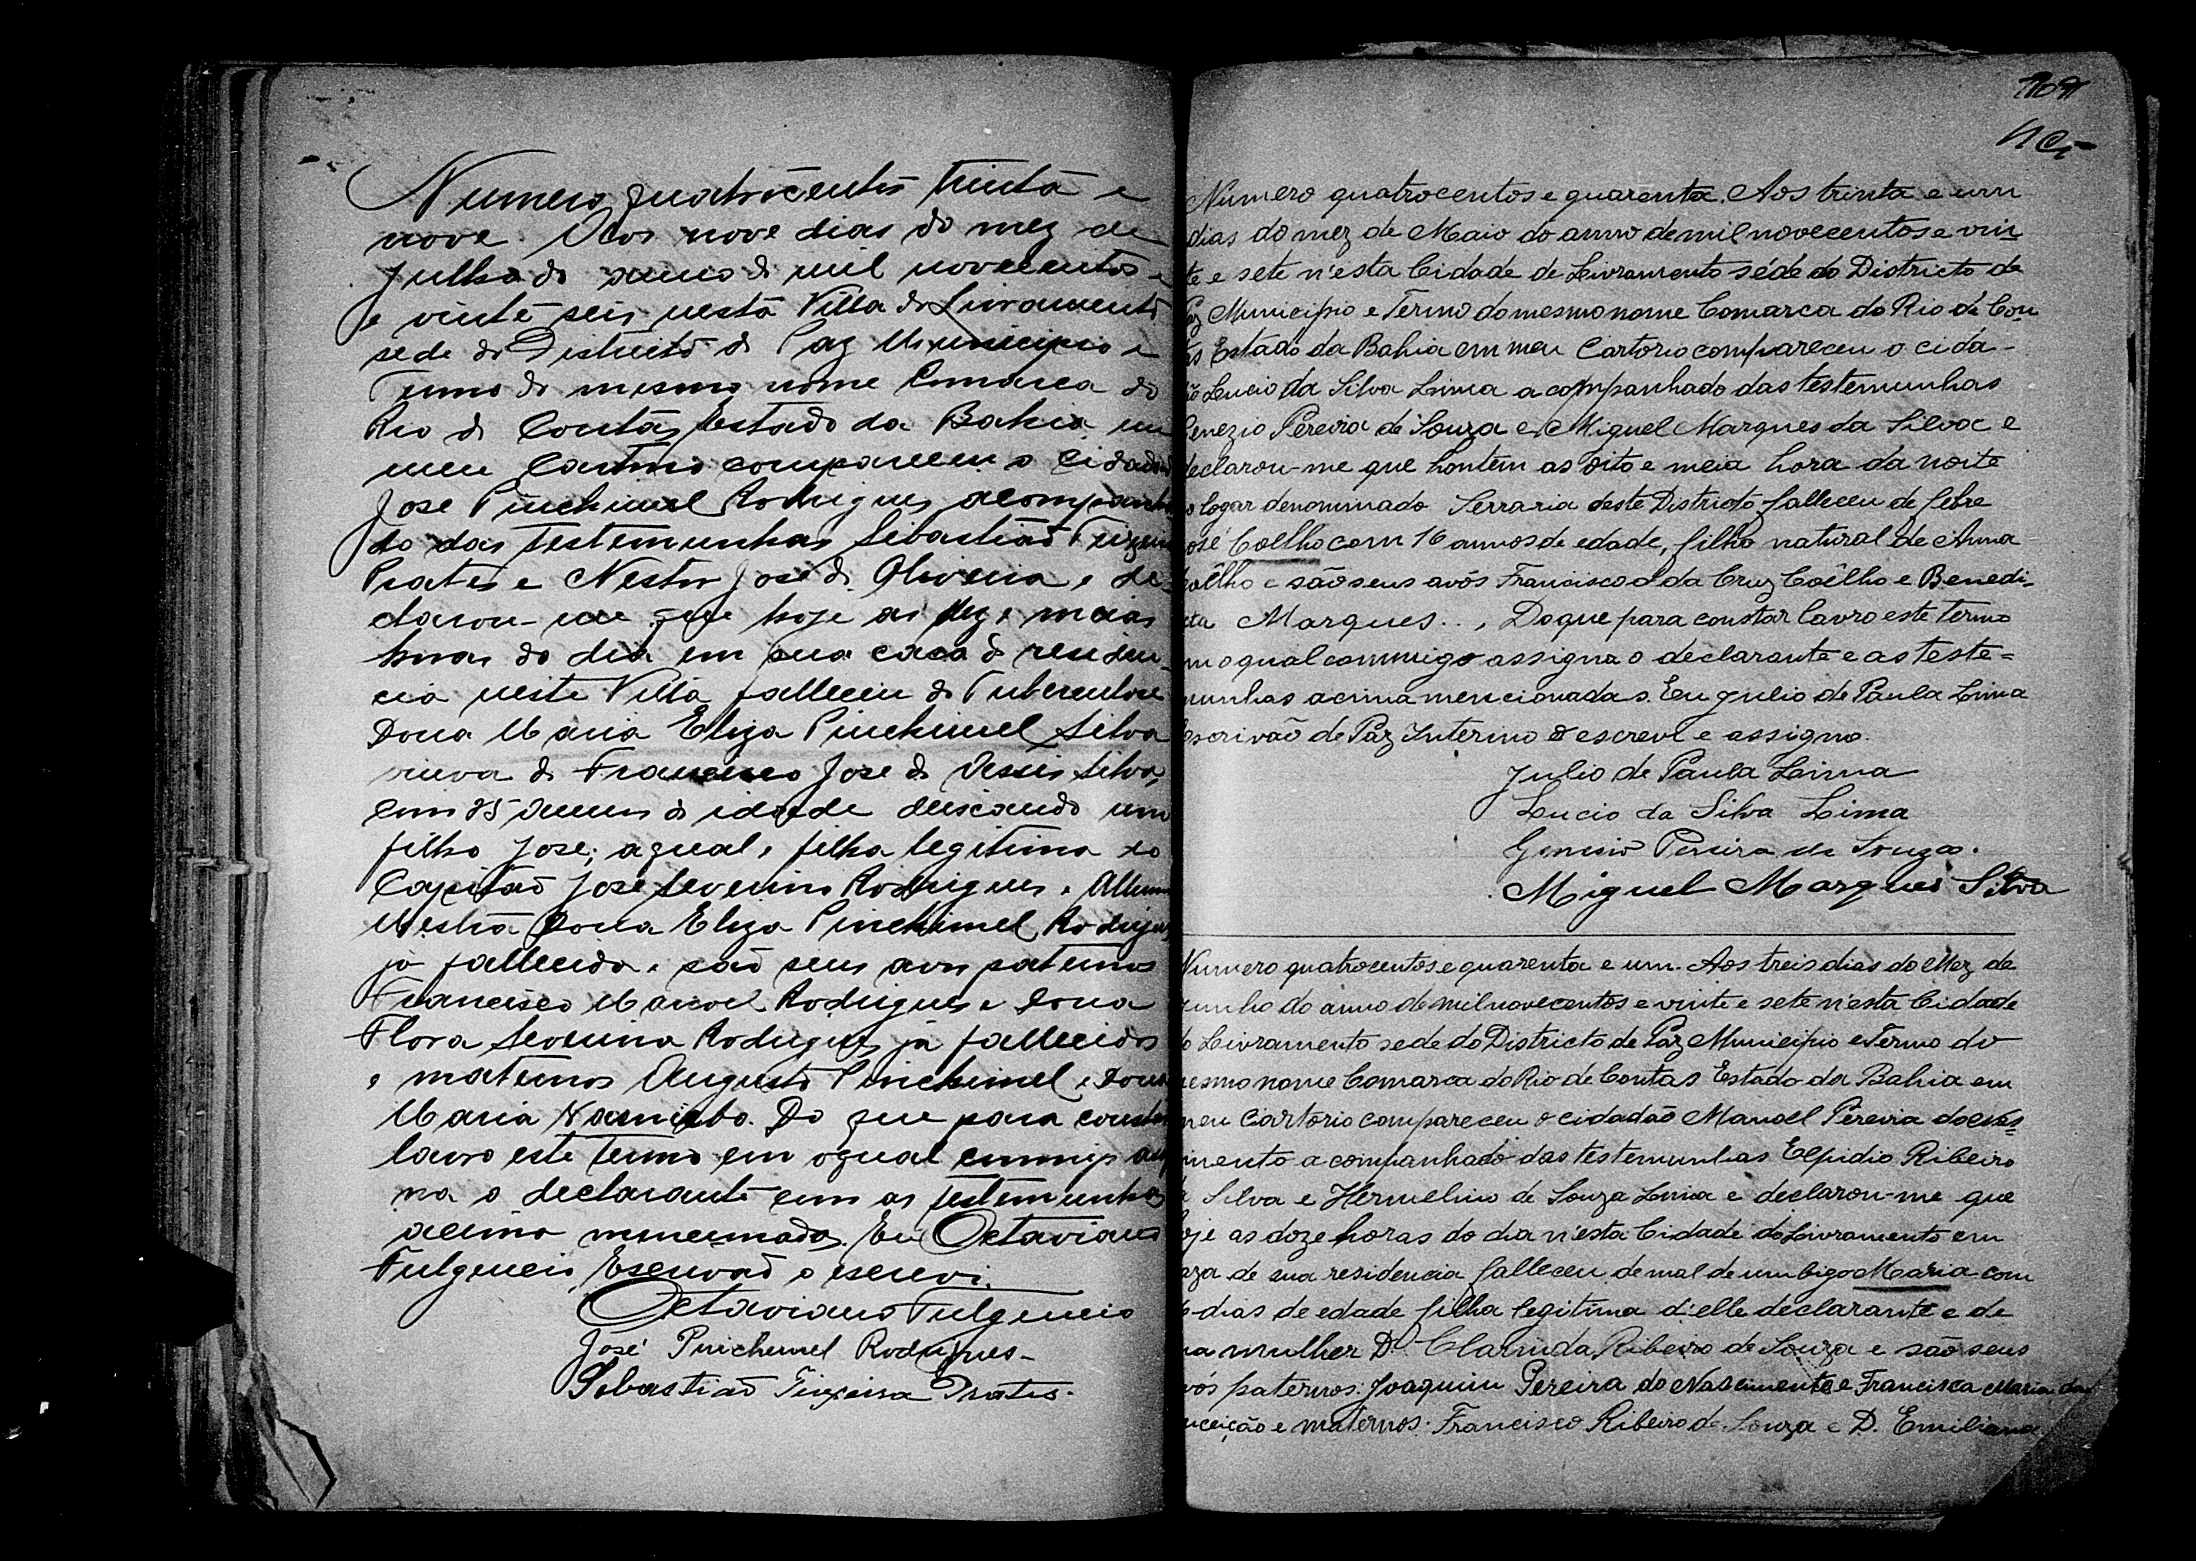 Numero quatrocentos trinta e
nove. Aos nove dias do mez de
Julho do anno de mil novecentos e
e vinte seis nesta Villa do Livramento
sede do Districto de Paz Municipio e
Termo do mesmo nome Comarca do
Rio de Contas Estado da Bahia em
meu Cartorio compareceu o cidadão
José Pinchimel Rodrigues acompanha
do das testemunhas Sebastião Teixeira
Prates e Nestor José de Oliveira e de-
clarou-me que hoje as dez e meias
horas do dia em sua casa de residen-
cia nesta Villa falleceu de Tuberculose
Dona Maria Eliza Pinchimel Silva
viuva de Francisco José de Assis Silva,
com 25 annos de idade deixando um
filho José; a qual é filha legitima do
Capitão José Severino Rodrigues e
Mestra Dona Eliza Pinchimel Rodrigues
já fallecida e são seus avós paternos
Francisco Manoel Rodrigues e Dona
Flora Severina Rodrigues já fallecidos
e maternos Augusto Pinchimel e Dona
Maria. Do que para constar
lavro este termo em o qual commigo assig
na o declarante com as testemunhas
acima mencionadas. Eu Octaviano
Fulgencio, Escrivão o escrevi.
Octaviano Fulgencio
José Pinchemel Rodrigues-
Sebastião Teixeira Prates.
Numero quatrocentos e quarenta. Aos trinta e um
dias do mez de Maio do anno de mil novecentos e vin
te e sete n'esta Cidade de Livramento séde do Districto de
Paz Municipio e Termo do mesmo nome Comarca do Rio de Con
tas Estado da Bahia em meu Cartorio compareceu o cida-
dão Lucio da Silva Lima acompanhado das testemunhas
Genezio Pereira de Souza e Miguel Marques da Silva e
declarou-me que hontem as oito e meia hora da noite
no logar denominado Serraria deste Districto falleceu de febre
José Coelho com 16 annos de edade, filho natural de Anna
Coêlho e são seus avós Francisco da Cruz Coêlho e Benedi-
cta Marques.., Do que para constar lavro este termo
em o qual commigo assigna o declarante e as teste=
munhas acima mencionadas. Eu Julio de Paula Lima
Escrivão de Paz Interino o escrevi e assigno.
Julio de Paula Lima
Lucio da Silva Lima
Genesio Pereira de Souza.
Miguel Marques Silva
Numero quatrocentos e quarenta e um. Aos treis dias do Mez de
Junho do anno de mil novecentos e vinte e sete n'esta Cidade
do Livramento sede do Districto de Paz Municipio e Termo do
mesmo nome Comarca do Rio de Contas Estado da Bahia em
meu Cartorio compareceu o cidadão Manoel Pereira do Nas=
cimento acompanhado das testemunhas Elpidio Ribeiro
da Silva e Hermelino de Souza Lima e declarou-me que
hoje as doze horas do dia n'esta Cidade do Livramento em
caza de sua residencia falleceu de mal de umbigo Maria com
dias de edade filha legitima d'elle declarante e de
sua mulher D. Clarinda Ribeiro de Souza e são seus
avós paternos: Joaquim Pereira do Nascimento e Francisca Maria da
Conceição e maternos: Francisco Ribeiro de Souza e D. Emiliana